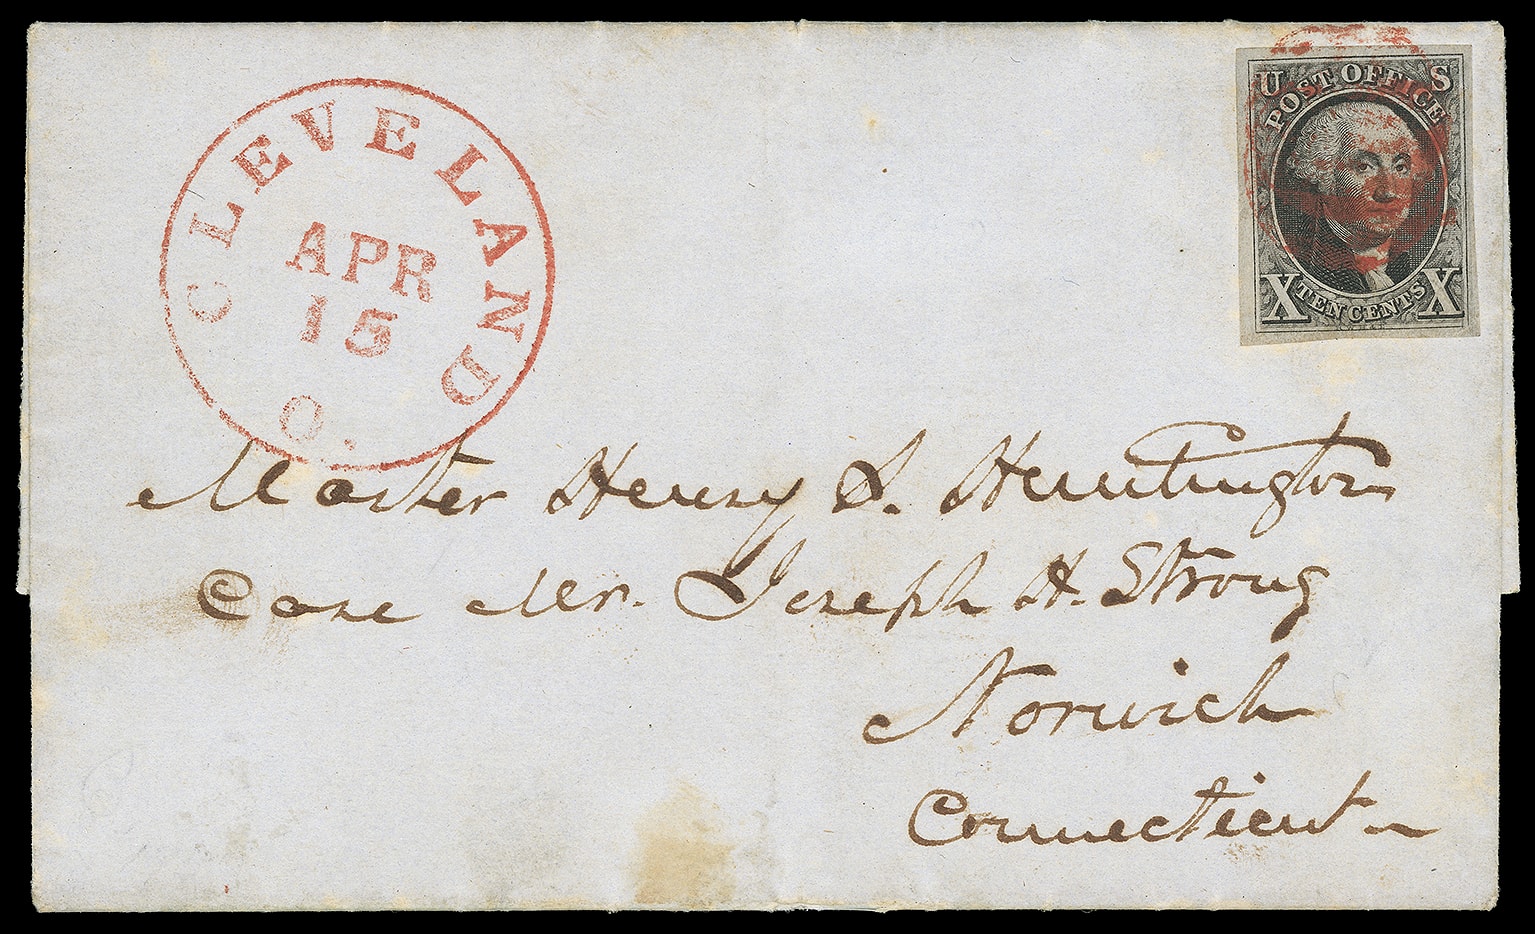 CLEVELAND
APR
15
O.
U S
POST OFFICE
X TEN CENTS X
Master Henry S. Huntington
Care Mr. Joseph H. Strong
Norwich
Connecticut